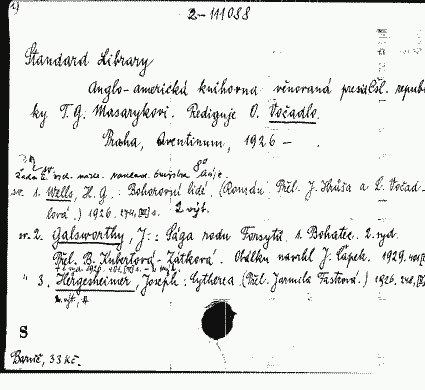 2-111088
Standard Library
Anglo-americká knihovna věnovaná presid. Čsl. republi
ky T. G. Masarykovi. Rediguje O. Vočadlo.
Praha, Aventinum, 1926 —
8°
sv. 1. Wells, H. G.: Bohorovní lidé. (Román. Přel. J. Hrůša a L. Vočad-
lová.) 1926. 274, s. 2. výt.
sv. 2. Galsworthy J.: Sága rodu Forsytů 1. Bohatec. 2. vyd.
Přel. B. Kubertová-Zátková. Obálku navrhl J. Čapek. 1929. 401
" 3. Hergesheimer, Joseph: Cytherea (Přel. Jarmila Fastrová.) 1926. 248,
2. výt.
S
Barvič, 33 Kč.